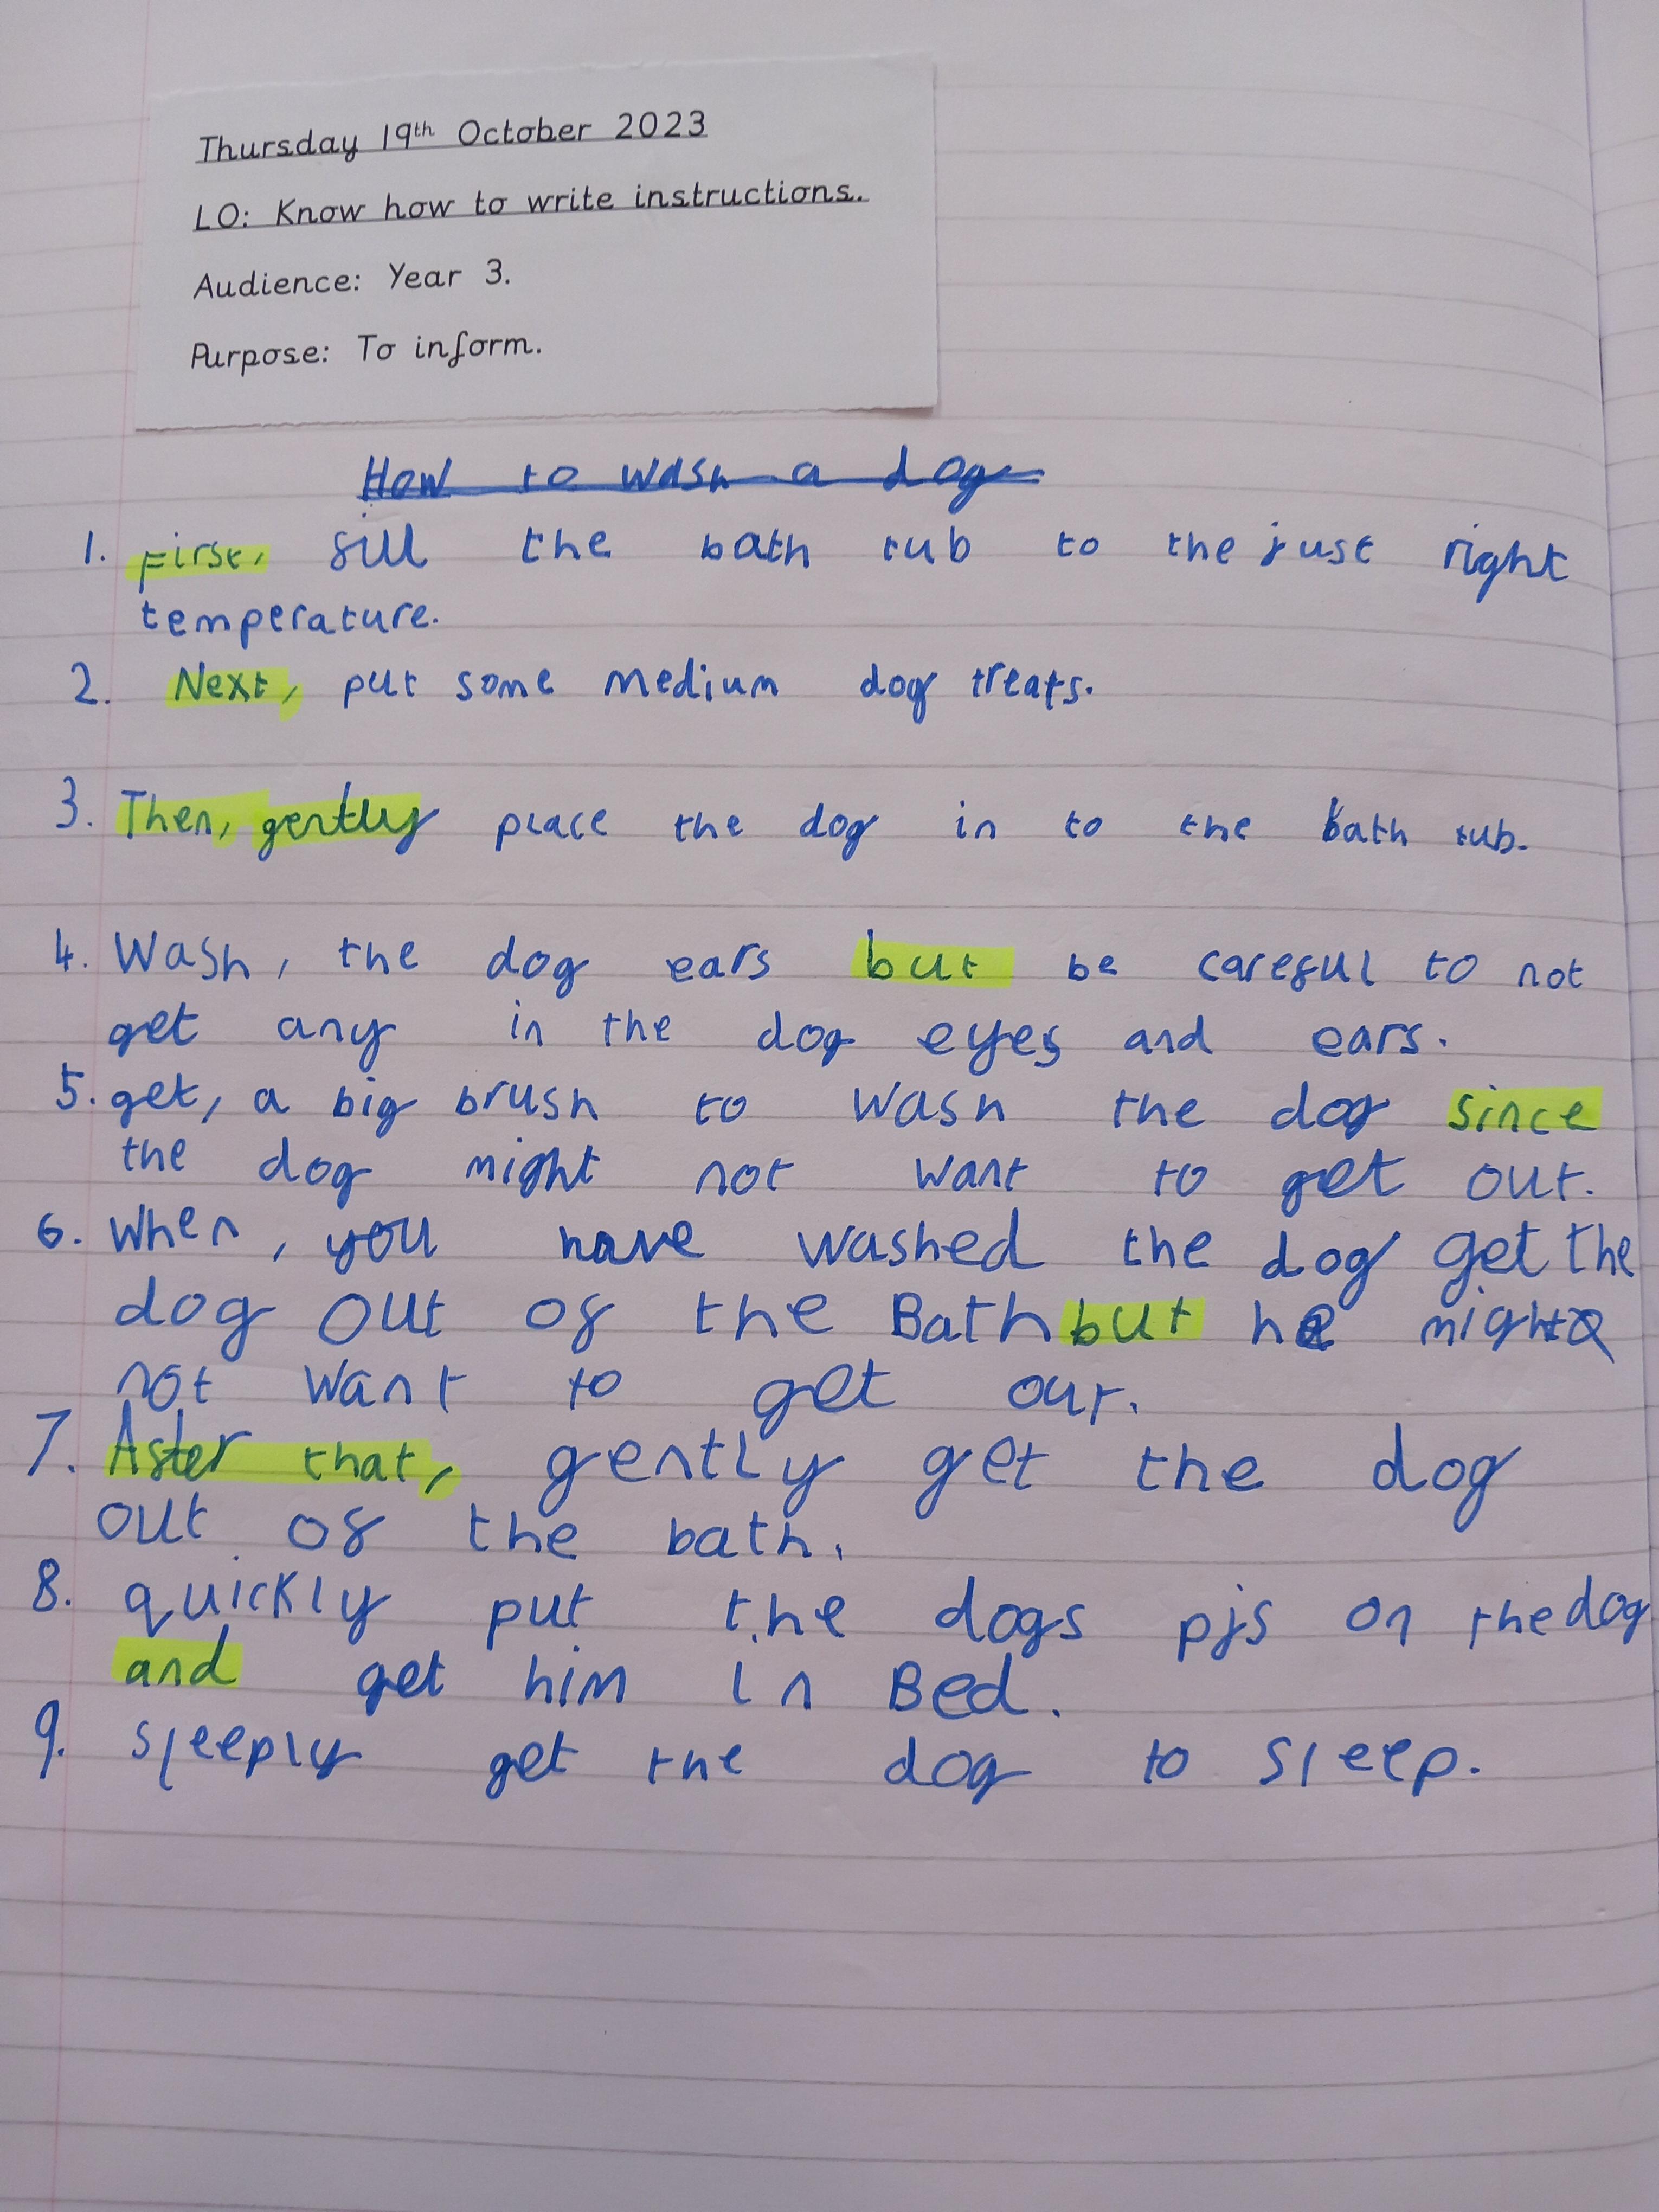 Thursday 19th October 2023
LO: Know how to write instructions.
Audience: Year 3.
Purpose: To inform.
How to wash a dog
1. First, fill the bath tub to the just right
temperature.
2. Next, put some medium dog treats.
3. Then, gently place the dog in to the bath tub.
4. Wash, the dog ears but be careful to not
get any in the dog eyes and ears.
5. get, a big brush to wash the dog since
the dog might not want to get out.
6. When, you have washed the dog get the
dog out of the Bath but he might
not want to get out.
7. After that, gently get the dog
out of the bath.
8. quickly put the dogs pjs on the dog
and get him in Bed.
9. sleeply get the dog to sleep.